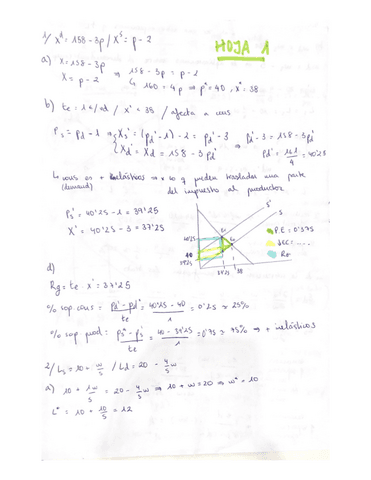 HOJA 1
1/ X^d = 158 - 3p / X^s = p - 2
a) X = 158 - 3p
X = p - 2 ⇒ 158 - 3p = p - 2
↳ 160 = 4p ⇒ p* = 40, X* = 38
b) te = 1€/ud / X* = 38 / afecta a cons
Ps = Pd - 1 ⇒ { Xs' = (Pd' - 1) - 2 = Pd' - 3
Xd' = Xd = 158 - 3Pd' ⇒ Pd' - 3 = 158 - 3Pd'
Pd' = 161/4 = 40'25
↳ cons es + elásticos ⇒ y pueden trasladar una parte
(demand) del impuesto al productor
Ps' = 40'25 - 1 = 39'25
X' = 40'25 - 3 = 37'25
S'
S
40'25
40
39'25
37'25 38
P.E = 0'375
Re
d)
Rg = te · X' = 37'25
% sop cons = (Pd' - Pd*)/te = (40'25 - 40)/1 = 0'25 ⇒ 25%
% sop prod = (Ps* - Ps')/te = (40 - 39'25)/1 = 0'75 ⇒ 75% ⇒ + inelásticos
2/ Ls = 10 + w/5 / Ld = 20 - 4/5 w
a) 10 + 1w/5 = 20 - 4/5 w ⇒ 10 + w = 20 ⇒ w* = 10
L* = 10 + 10/5 = 12